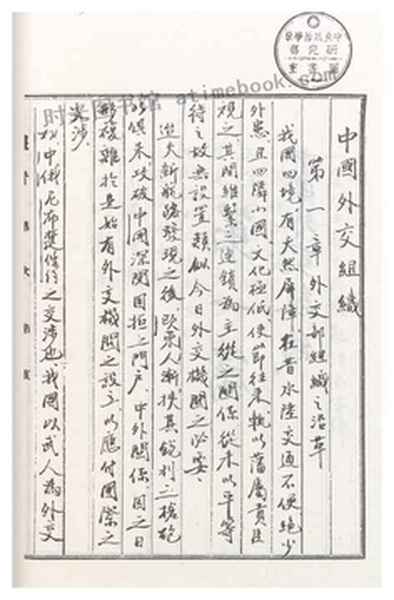 中國外交組織
第一章 外交部組織之沿革
我國四境，有天然屏障，在昔水陸交通不便，絶少
外患，且四隣小國，文化極低，使節往來，輒以藩屬貢臣
視之，其間維繫之連鎖，為主從之關係，從未以平等
待之，故無設置類似今日外交機關之必要。
迨大新航路發現之後，歐東人漸挾其銳利之槍砲
以俱來，攻破中國深閉固拒之門户，中外關係，因之日
形複雜，於是始有外交機關之設立，以應付國際之
交涉。
中俄尼布楚條約之交涉也，我國以武人為外交
时 图书馆 atimebook.com
中央政治學校
研究部
圖書室